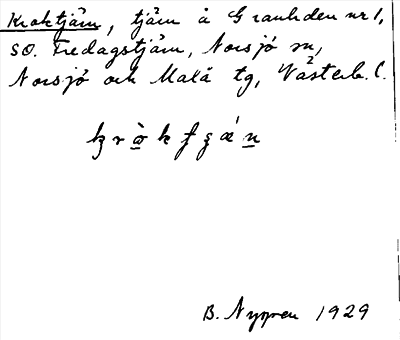 Kroktjärn, tjärn å Granheden nr 1,
SO. Fredagstjärn, Norsjö sn,
Norsjö och Malå tg, Västerb. l.
B. Nygren 1929